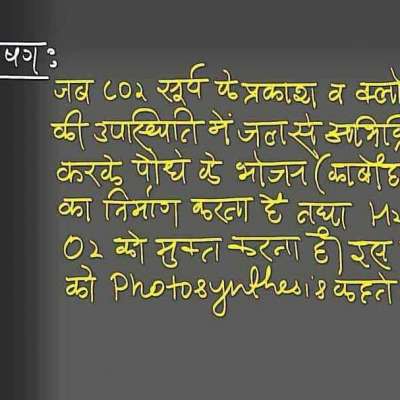 षण :
जब CO2 सूर्य के प्रकाश व क्लो
की उपस्थिति में जल से अभिक्रि
करके पौधे के भोजन (कार्बोह
का निर्माण करता है तथा H2
O2 को मुक्त करता है) इस
को Photosynthesis कहते